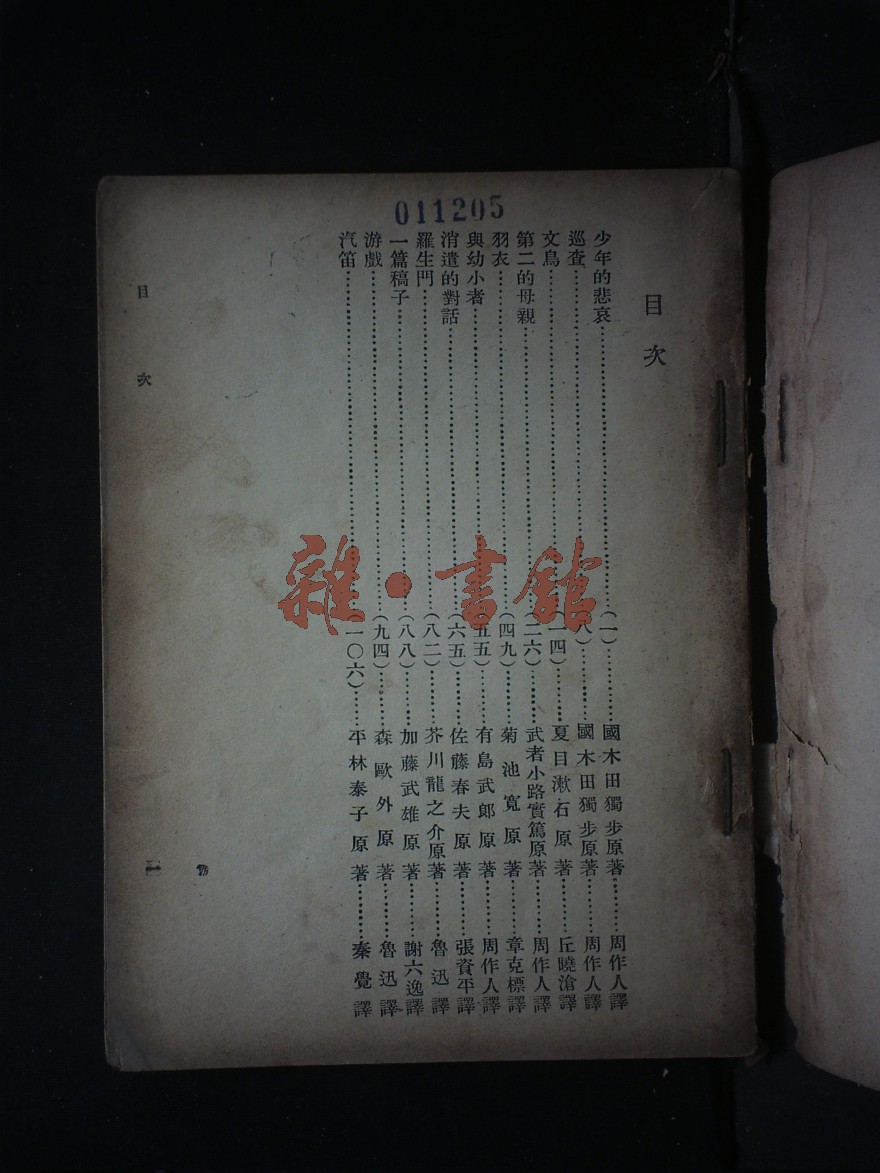 011205
目次
少年的悲哀……(一)……國木田獨步原著……周作人譯
巡查……(八)……國木田獨步原著……周作人譯
文鳥……(一四)……夏目漱石原著……丘曉滄譯
第二的母親……(二六)……武者小路實篤原著……周作人譯
羽衣……(四九)……菊池寬原著……章克標譯
與幼小者……(五五)……有島武郎原著……周作人譯
消遣的對話……(六五)……佐藤春夫原著……張資平譯
羅生門……(八二)……芥川龍之介原著……魯迅譯
一篇稿子……(八八)……加藤武雄原著……謝六逸譯
游戲……(九四)……森歐外原著……魯迅譯
汽笛……(一〇六)……平林泰子原著……秦覺譯
目次
一
雜·書館